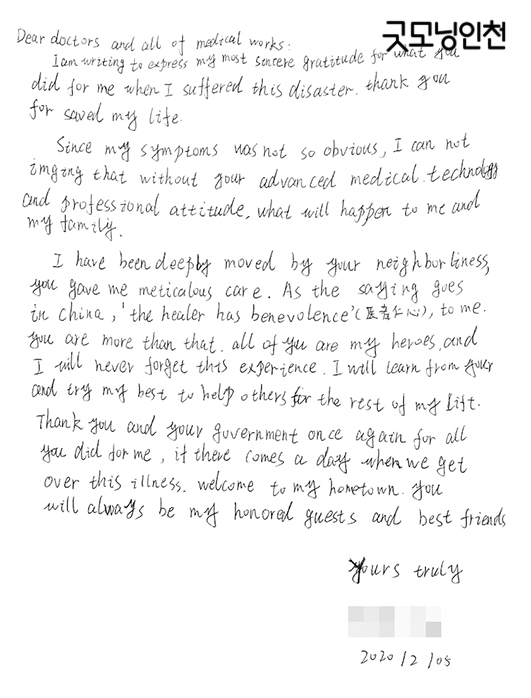 굿모닝인천
Dear doctors and all of medical works:
I am writing to express my most sincere gratitude for what you
did for me when I suffered this disaster. thank you
for saved my life.
Since my symptoms was not so obvious, I can not
imging that without your advanced medical technology
and professional attitude, what will happen to me and
my family.
I have been deeply moved by your neighborliness,
you gave me meticalous care. As the saying goes
in China, 'the healer has benevolence'(医者仁心), to me.
you are more than that. all of you are my heroes, and
I will never forget this experience. I will learn from your
and try my best to help others for the rest of my lift.
Thank you and your government once again for all
you did for me, if there comes a day when we get
over this illness. welcome to my hometown. you
will always be my honored guests and best friends
Yours truly
2020/2/05